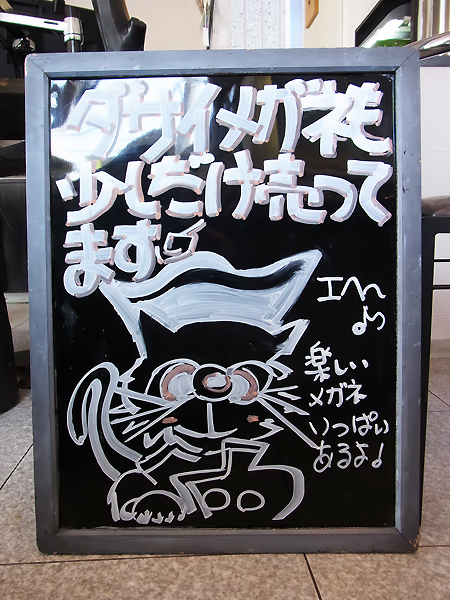 ダサイメガネも
少しだけ売って
ます
エヘヘ♪
楽しい
メガネ
いっぱい
あるよ♪